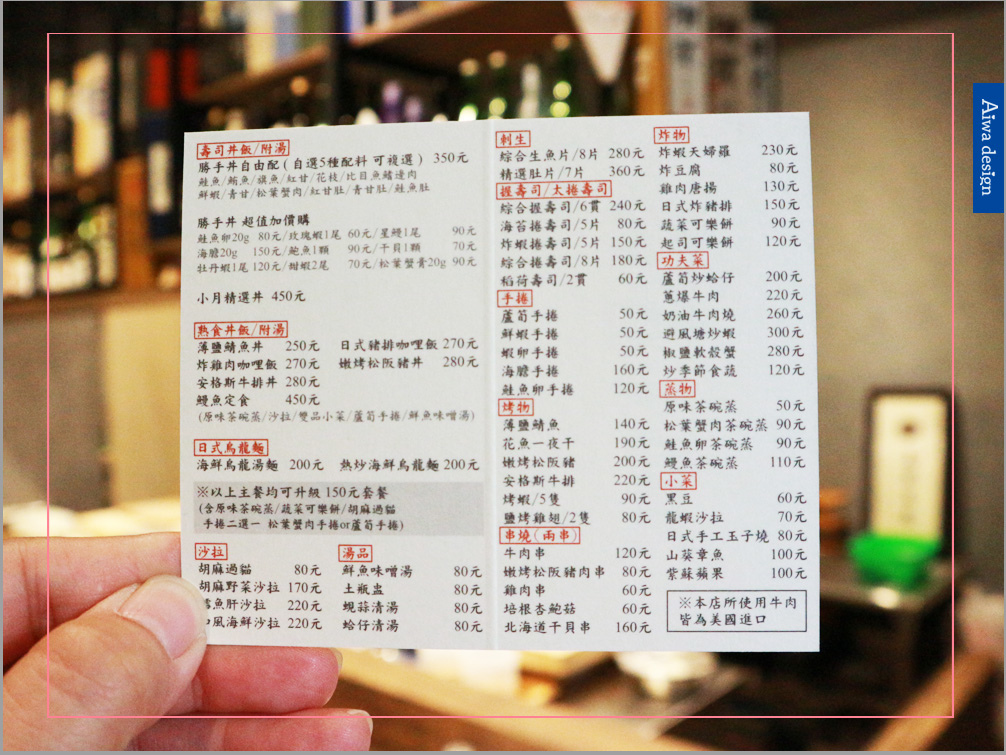 壽司丼飯/附湯
勝手丼自由配(自選5種配料 可複選) 350元
鮭魚/鮪魚/旗魚/紅甘/花枝/比目魚鰭邊肉
鮮蝦/青甘/松葉蟹肉/紅甘肚/青甘肚/鮭魚肚
勝手丼 超值加價購
鮭魚卵20g 80元/玫瑰蝦1尾 60元/星鰻1尾 90元
海膽20g 150元/鮑魚1顆 90元/干貝1顆 70元
牡丹蝦1尾 120元/甜蝦2尾 70元/松葉蟹膏20g 90元
小月精選丼 450元
熟食丼飯/附湯
薄鹽鯖魚丼 250元 日式豬排咖哩飯 270元
炸雞肉咖哩飯 270元 嫩烤松阪豬丼 280元
安格斯牛排丼 280元
鰻魚定食 450元
(原味茶碗蒸/沙拉/雙品小菜/蘆筍手捲/鮮魚味噌湯)
日式烏龍麵
海鮮烏龍湯麵 200元 熱炒海鮮烏龍麵 200元
※以上主餐均可升級 150元套餐
(含原味茶碗蒸/蔬菜可樂餅/胡麻過貓
手捲二選一 松葉蟹肉手捲or蘆筍手捲)
沙拉
胡麻過貓 80元
胡麻野菜沙拉 170元
魚肝沙拉 220元
風海鮮沙拉 220元
湯品
鮮魚味噌湯 80元
土瓶盅 80元
蜆蒜清湯 80元
蛤仔清湯 80元
刺生
綜合生魚片/8片 280元
精選肚片/7片 360元
握壽司/太捲壽司
綜合握壽司/6貫 240元
海苔捲壽司/5片 80元
炸蝦捲壽司/5片 150元
綜合捲壽司/8片 180元
稻荷壽司/2貫 60元
手捲
蘆筍手捲 50元
鮮蝦手捲 50元
蝦卵手捲 50元
海膽手捲 160元
鮭魚卵手捲 120元
烤物
薄鹽鯖魚 140元
花魚一夜干 190元
嫩烤松阪豬 200元
安格斯牛排 220元
烤蝦/5隻 90元
鹽烤雞翅/2隻 80元
串燒(兩串)
牛肉串 120元
嫩烤松阪豬肉串 80元
雞肉串 60元
培根杏鮑菇 60元
北海道干貝串 160元
炸物
炸蝦天婦羅 230元
炸豆腐 80元
雞肉唐揚 130元
日式炸豬排 150元
蔬菜可樂餅 90元
起司可樂餅 120元
功夫菜
蘆筍炒蛤仔 200元
蔥爆牛肉 220元
奶油牛肉燒 260元
避風塘炒蝦 300元
椒鹽軟殼蟹 280元
炒季節食蔬 120元
蒸物
原味茶碗蒸 50元
松葉蟹肉茶碗蒸 90元
鮭魚卵茶碗蒸 90元
鰻魚茶碗蒸 110元
小菜
黑豆 60元
龍蝦沙拉 70元
日式手工玉子燒 80元
山葵章魚 100元
紫蘇蘋果 100元
※本店所使用牛肉
皆為美國進口
Aiwa design